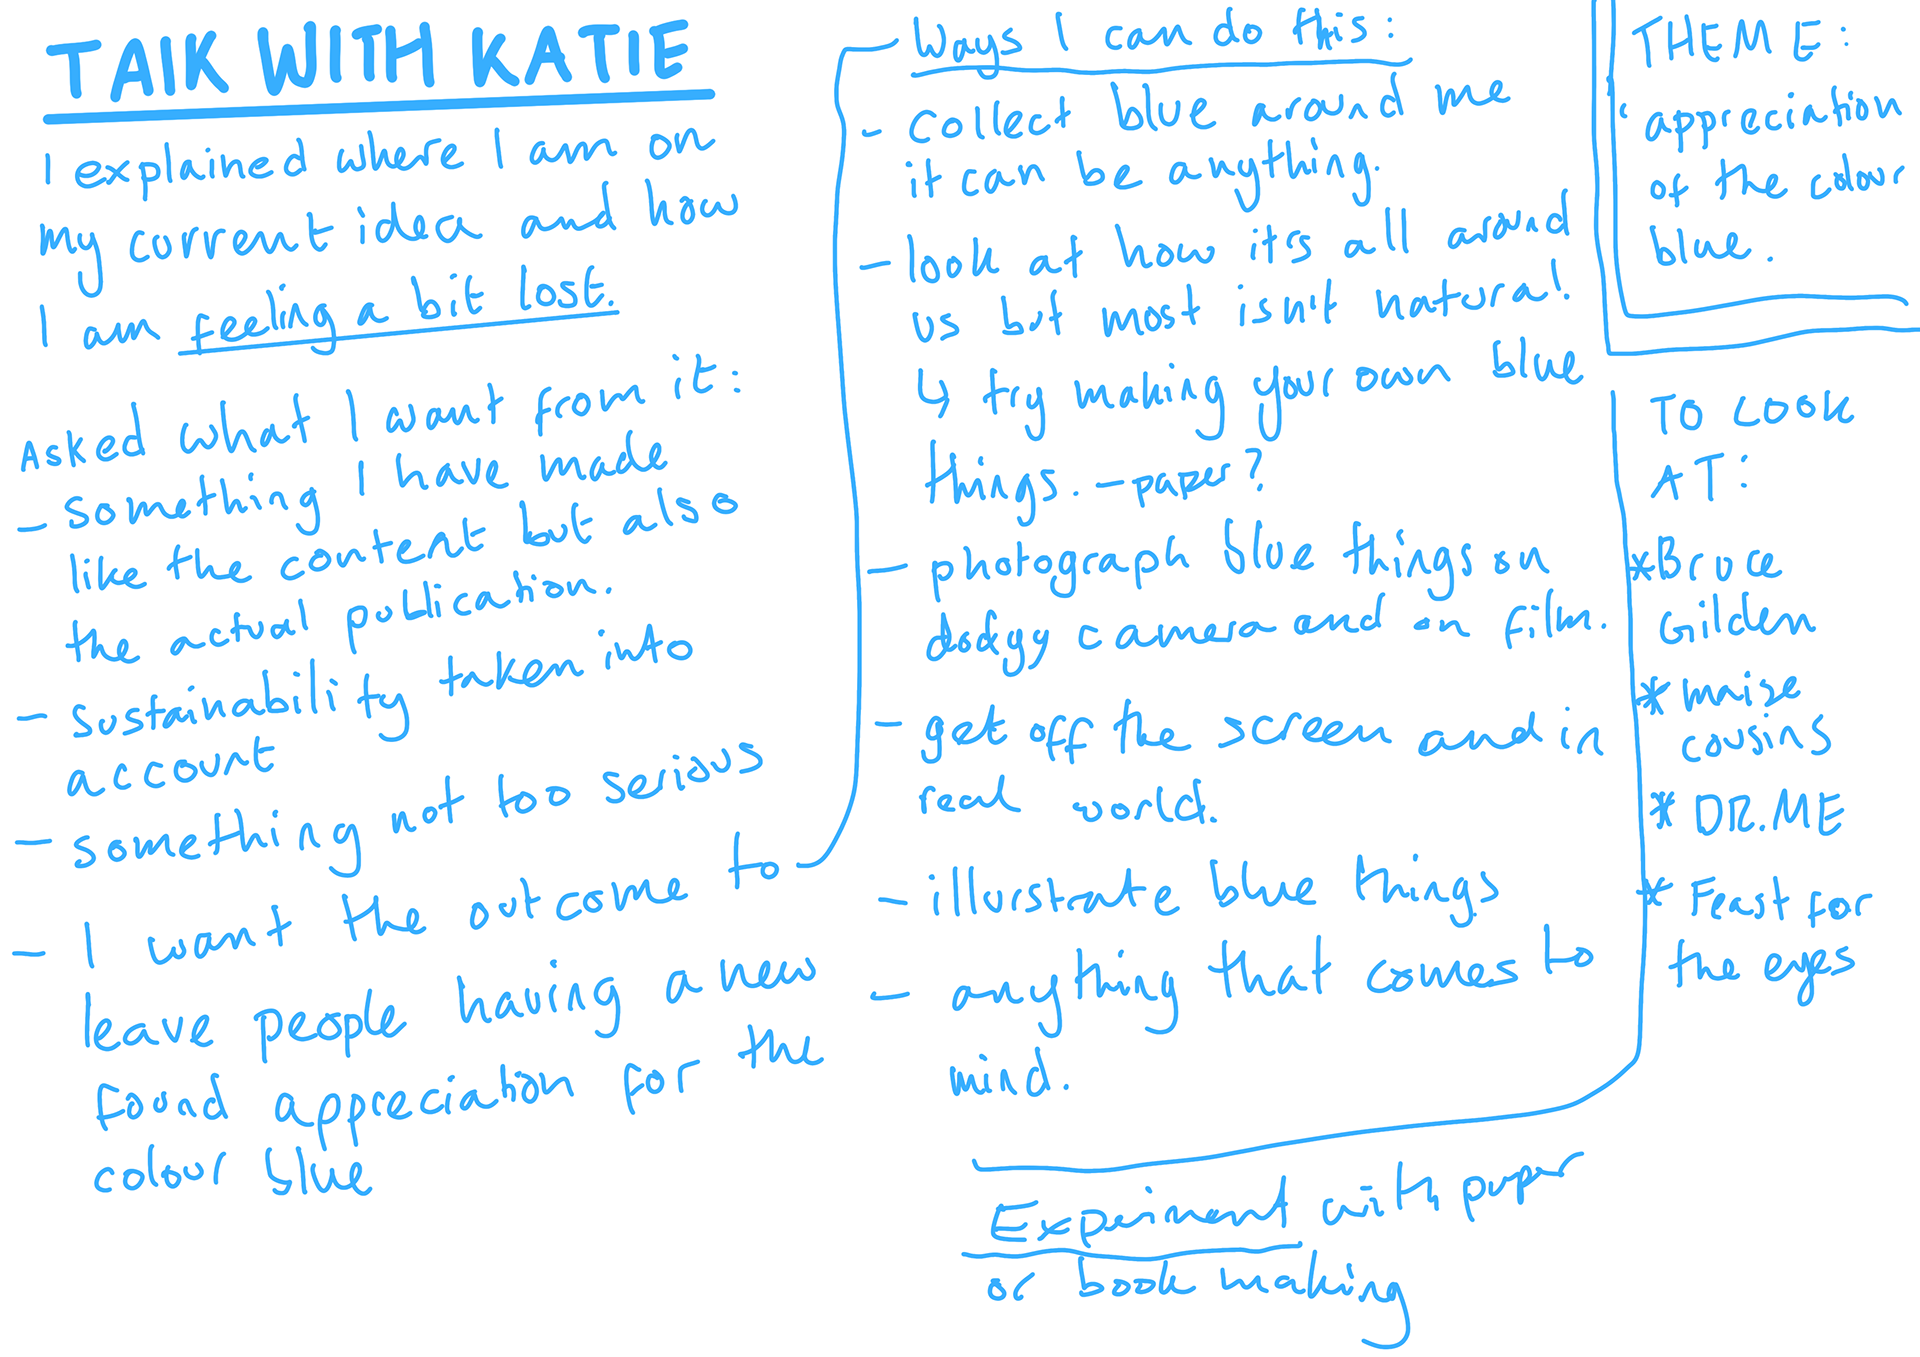 TALK WITH KATIE
I explained where I am on
my current idea and how
I am feeling a bit lost.
Asked what I want from it:
- something I have made
like the content but also
the actual publication.
- sustainability taken into
account
- something not too serious
- I want the outcome to
leave people having a new
found appreciation for the
colour blue
Ways I can do this:
- collect blue around me
it can be anything.
- look at how it's all around
us but most isn't natural!
↳ try making your own blue
things. - paper?
- photograph blue things on
dodgy camera and on film.
- get off the screen and in
real world.
- illurstrate blue things
- anything that comes to
mind.
Experiment with paper
or book making
THEME:
appreciation
of the colour
blue.
TO LOOK
AT:
*Bruce
Gilden
* maise
cousins
* DR.ME
* Feast for
the eyes